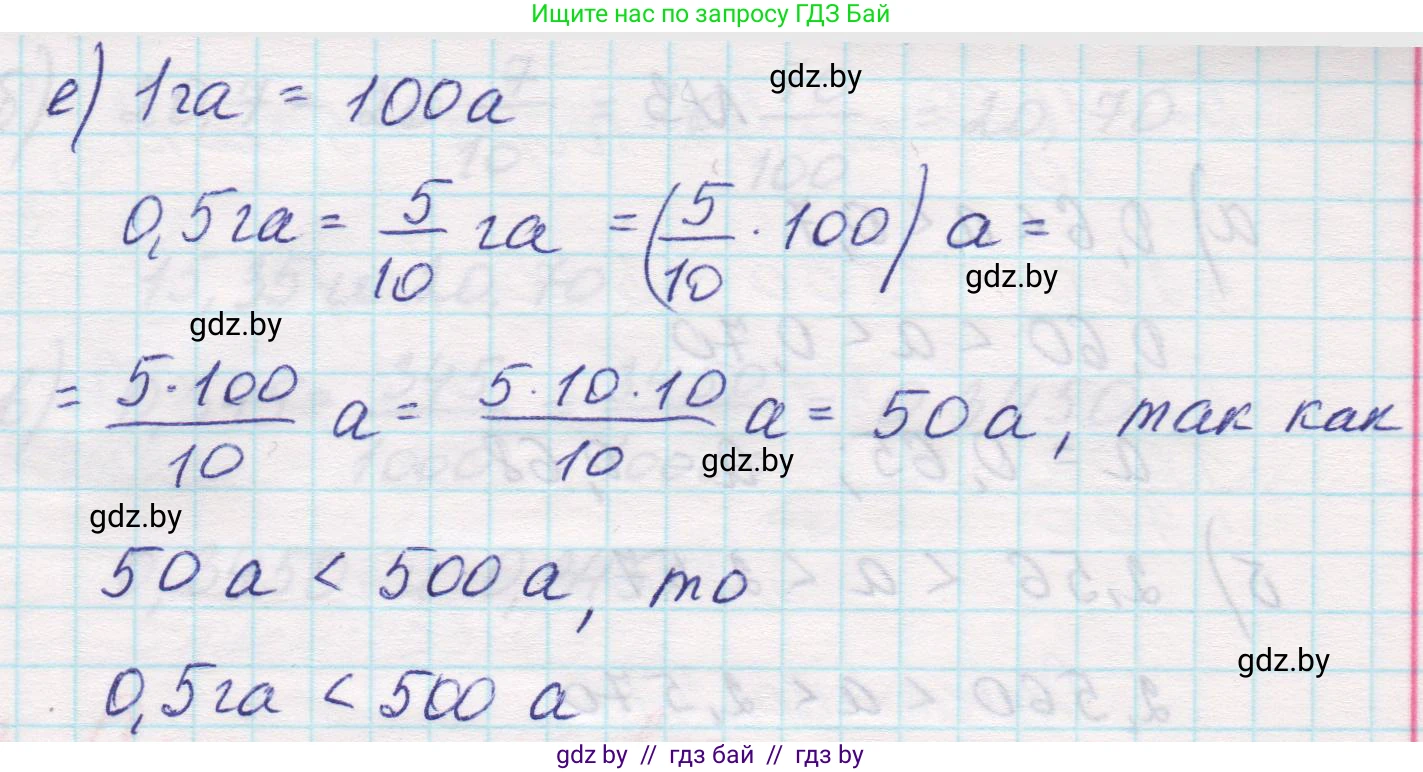 Ищите нас по запросу ГДЗ Бай
е) 1га = 100а
gdz.by
0,5га = 5/10 га = (5/10 · 100) а =
gdz.by
gdz.by
= 5·100/10 а = 5·10·10/10 а = 50а, так как
gdz.by
gdz.by
50 а < 500 а, то
gdz.by
0,5га < 500 а
gdz.by // гдз бай // гдз by